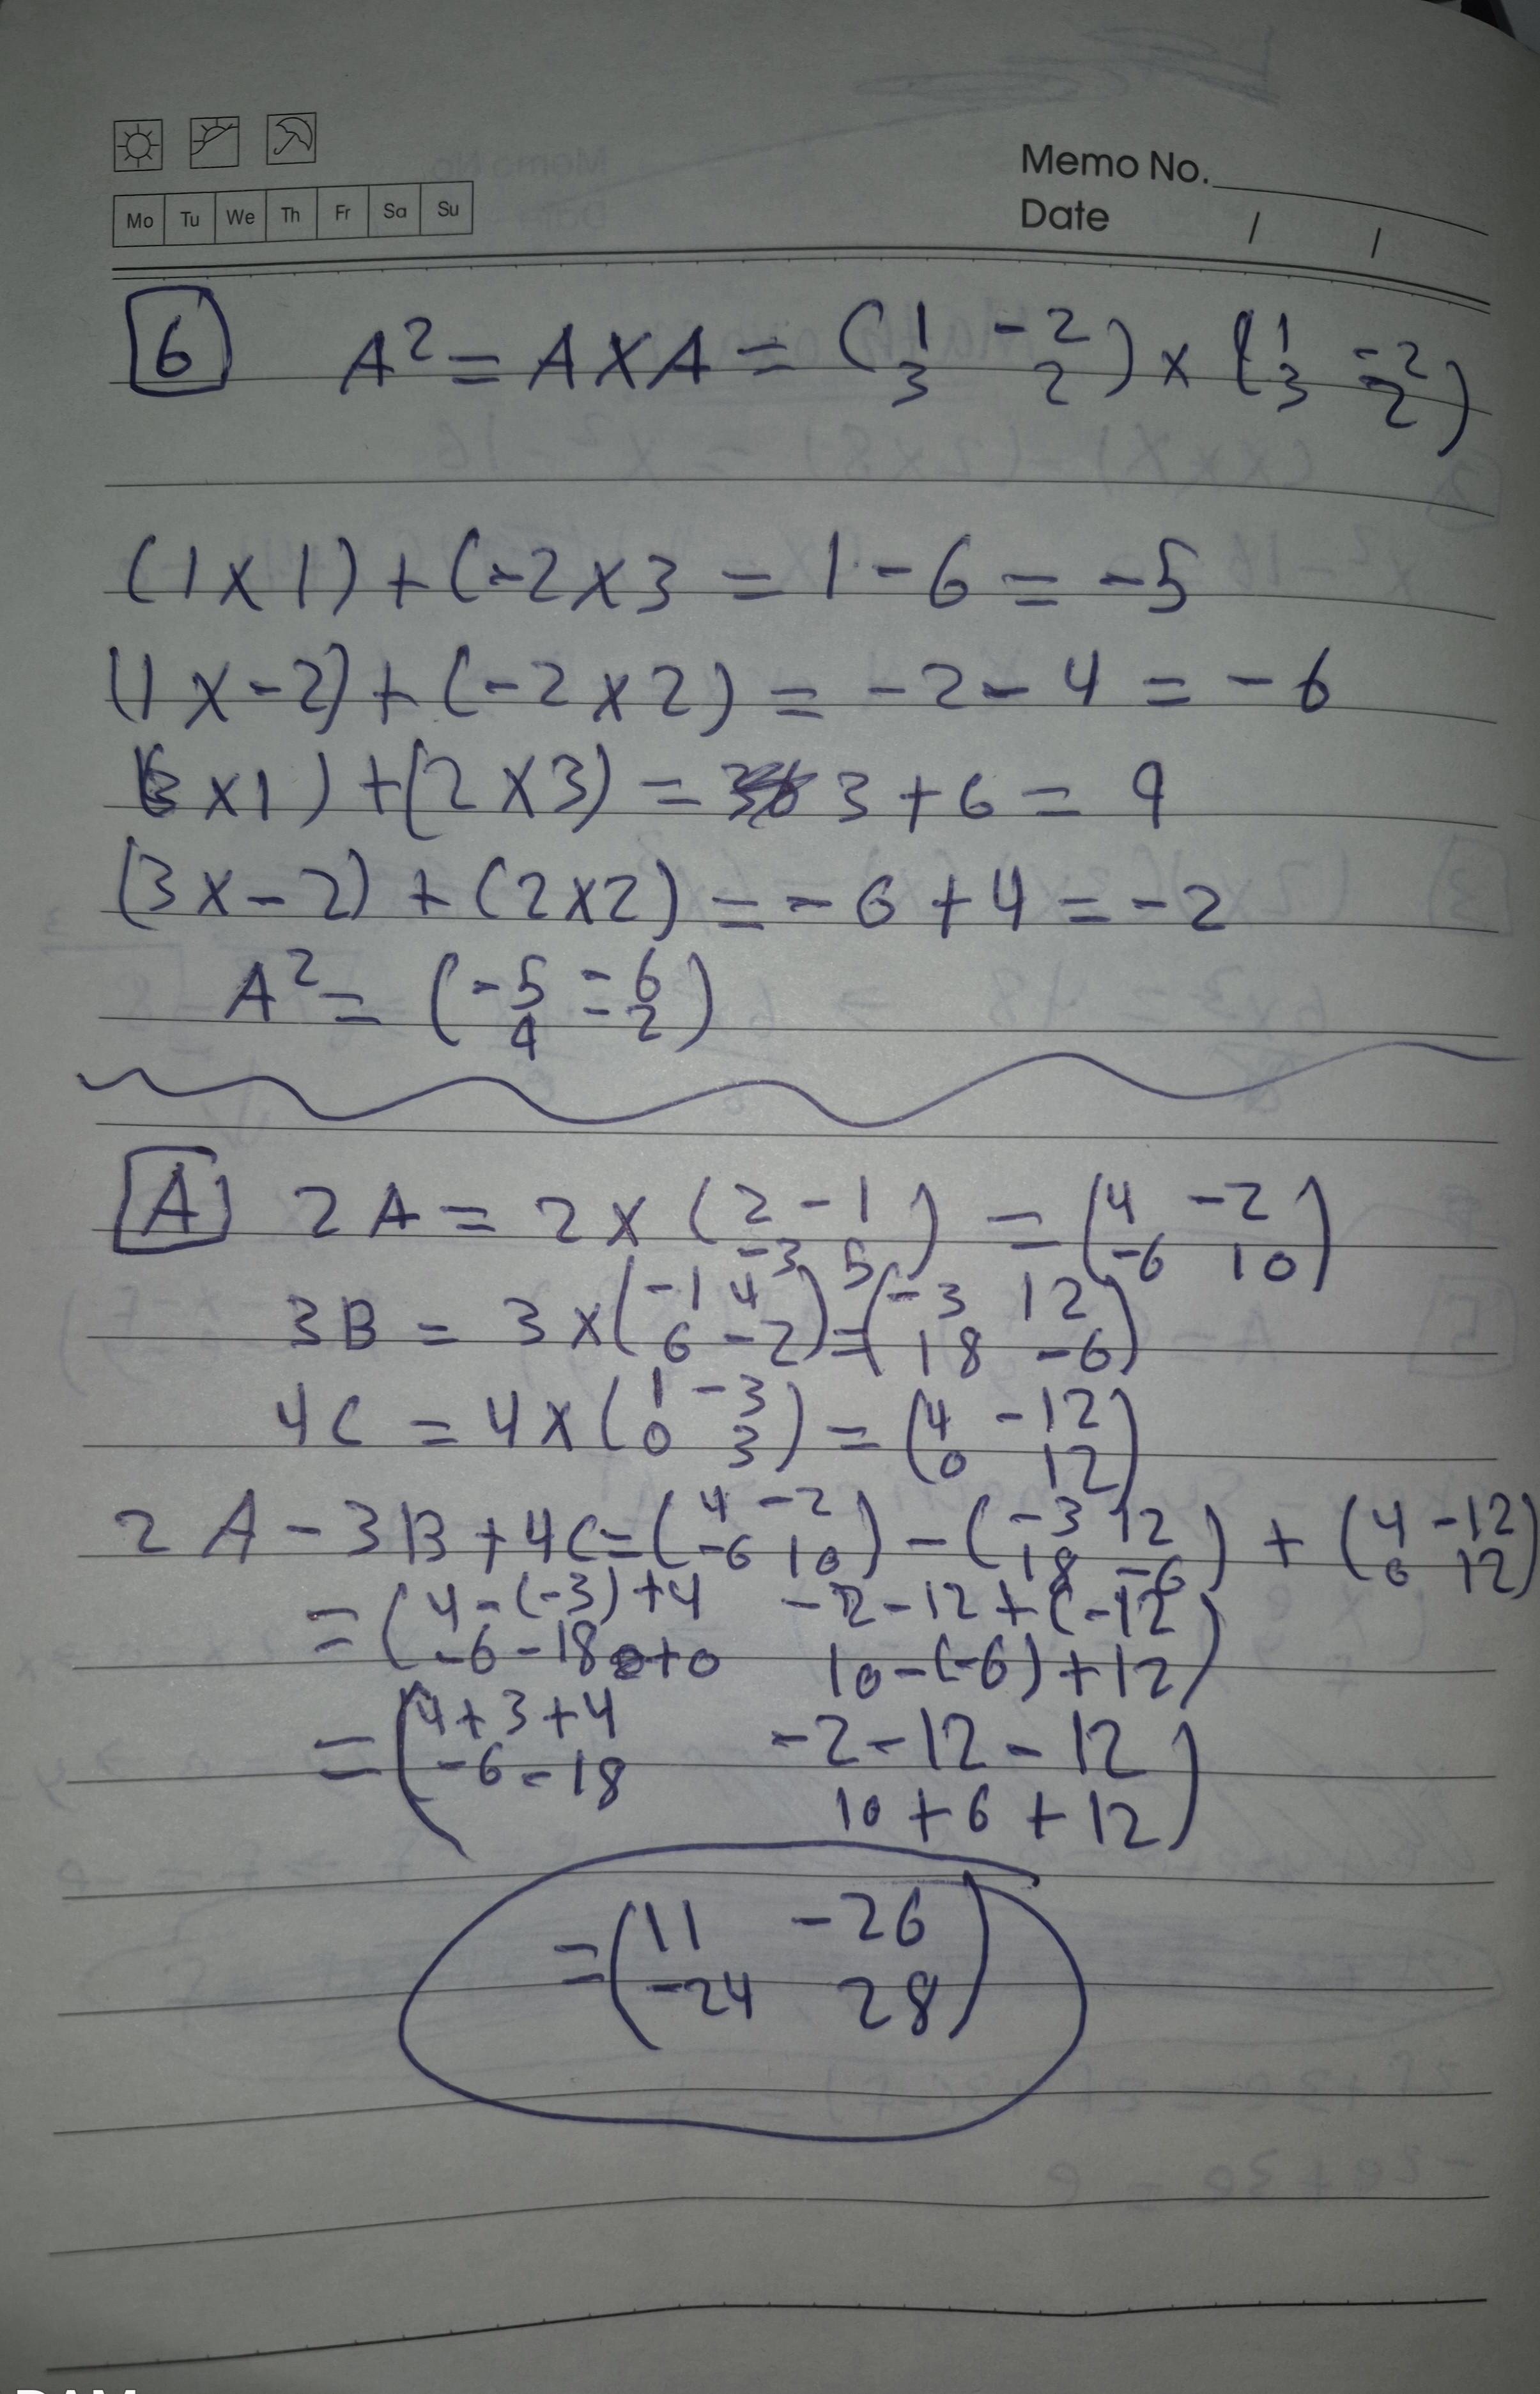 Mo Tu We Th Fr Sa Su
Memo No.
Date / /
6 A² = A X A = ( 1 -2 ) x ( 1 -2 )
3 2 3 2
(1 x 1) + (-2 x 3 = 1 - 6 = -5
(1 x -2) + (-2 x 2) = -2 - 4 = -6
(3 x 1) + (2 x 3) = 3 + 6 = 9
(3 x -2) + (2 x 2) = -6 + 4 = -2
A² = ( -5 -6 )
9 -2
A 2A = 2 x ( 2 -1 ) = ( 4 -2 )
-3 5 -6 10
3B = 3 x ( -1 4 ) = ( -3 12 )
6 -2 18 -6
4C = 4 x ( 1 -3 ) = ( 4 -12 )
0 3 0 12
2A - 3B + 4C = ( 4 -2 ) - ( -3 12 ) + ( 4 -12 )
-6 10 18 -6 0 12
= ( 4 - (-3) + 4 -2 - 12 + (-12 )
-6 - 18 + 0 10 - (-6) + 12
= ( 4 + 3 + 4 -2 - 12 - 12 )
-6 - 18 10 + 6 + 12
= ( 11 -26 )
-24 28